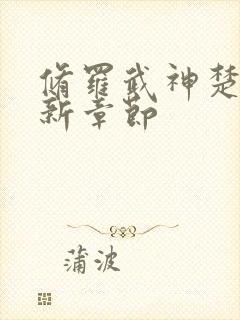 脩羅武神楚
新章節
蒲波